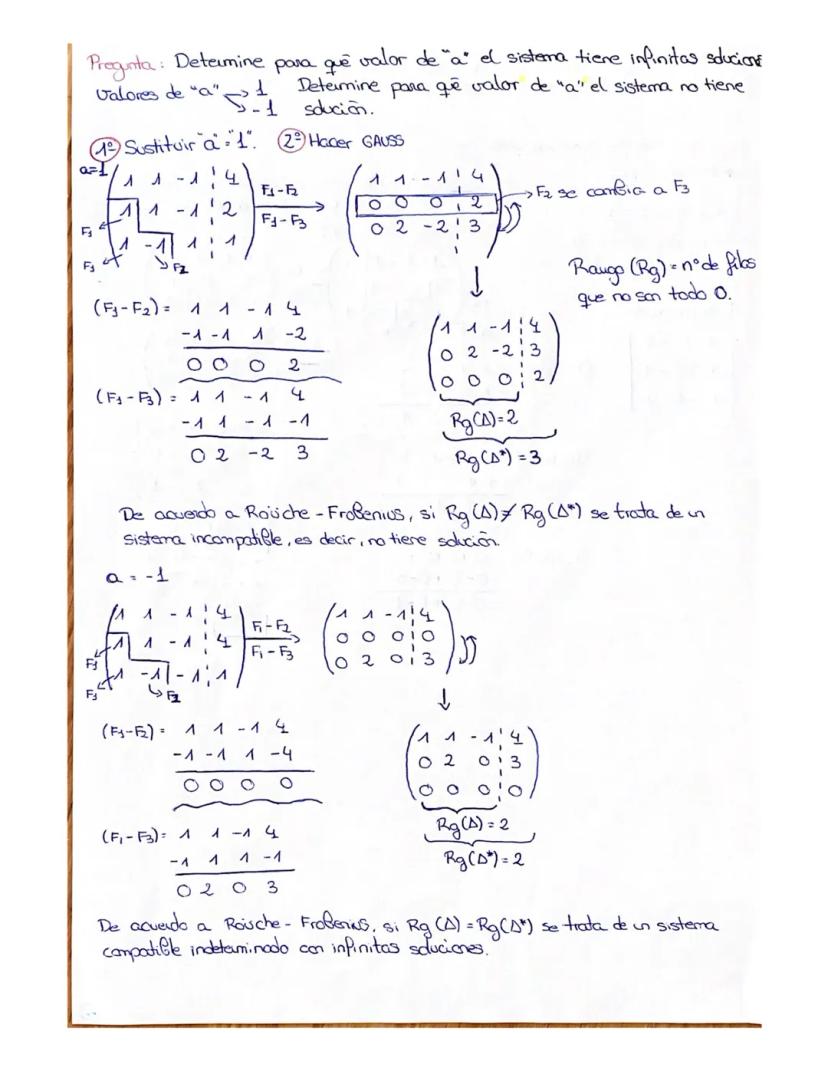 Pregunta: Determine para qué valor de "a" el sistema tiene infinitas solucione
Valores de "a" → 1 Determine para qué valor de "a" el sistema no tiene
↘ -1 solución.
1º Sustituir "a"="1". 2º Hacer GAUSS
a=1
1 1 -1 4 F1-F2 1 1 -1 4
1 1 -1 2 F1-F3 0 0 0 2 → F2 se cambia a F3
1 -1 1 1 0 2 -2 3
F1
F1 F2
Rango (Rg) = nº de filas
que no son todo 0.
(F1-F2) = 1 1 -1 4
-1 -1 1 -2
0 0 0 2
(F1-F3) = 1 1 -1 4
-1 1 -1 -1
0 2 -2 3
1 1 -1 4
0 2 -2 3
0 0 0 2
Rg(A)=2
Rg(A*)=3
De acuerdo a Roüche-Frobenius, si Rg(A) ≠ Rg(A*) se trata de un
sistema incompatible, es decir, no tiene solución.
a = -1
1 1 -1 4 F1-F2 1 1 -1 4
1 1 -1 4 F1-F3 0 0 0 0
1 -1 -1 1 0 2 0 3
F1
F1 F2
(F1-F2) = 1 1 -1 4
-1 -1 1 -4
0 0 0 0
(F1-F3) = 1 1 -1 4
-1 1 1 -1
0 2 0 3
1 1 -1 4
0 2 0 3
0 0 0 0
Rg(A)=2
Rg(A*)=2
De acuerdo a Roüche-Frobenius, si Rg(A)=Rg(A*) se trata de un sistema
compatible indeterminado con infinitas soluciones.